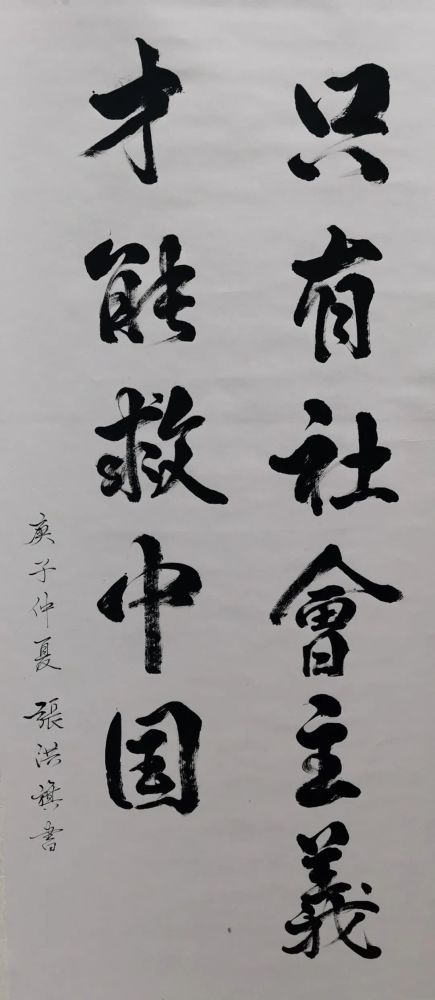 只有社會主義
才能救中国
庚子仲夏 張洪旗書